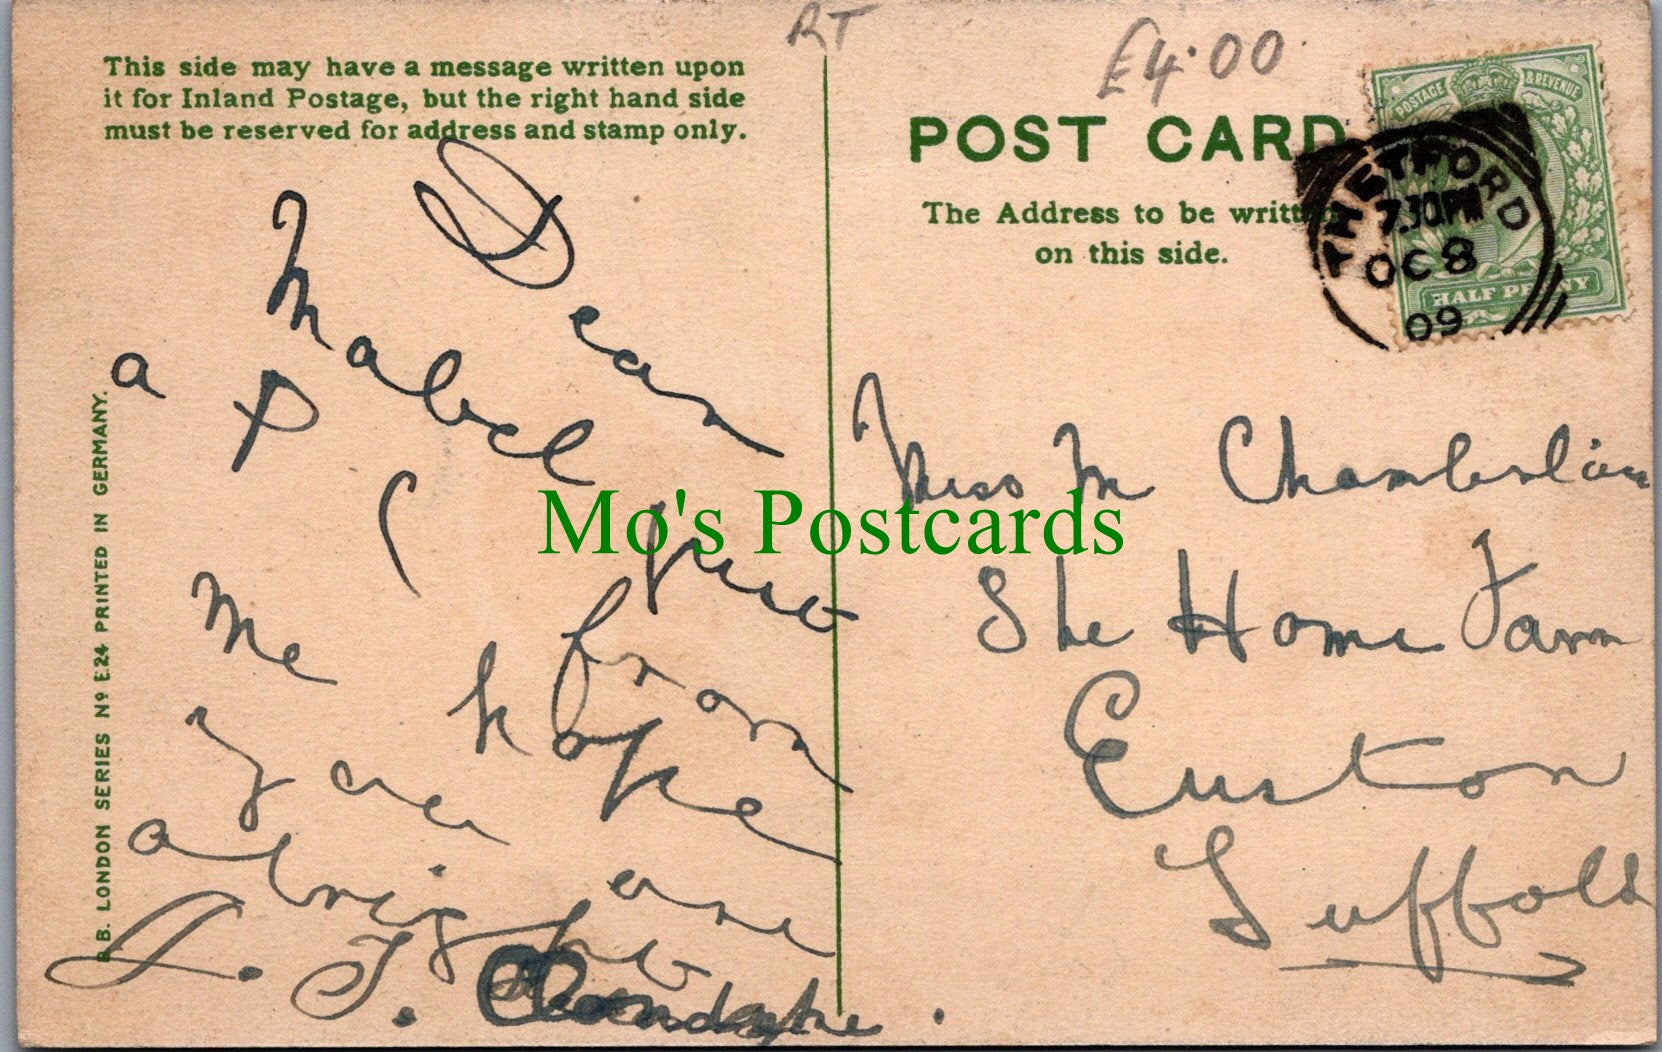 RT
£4.00
This side may have a message written upon
it for Inland Postage, but the right hand side
must be reserved for address and stamp only.
POST CARD
The Address to be written
on this side.
POSTAGE & REVENUE
HALF PENNY
THETFORD
7.30PM
OC 8
09
Dear
Mabel just
a P C from
me hope
you are
alright
A. J.
Miss M Chamberlain
The Home Farm
Euston
Suffolk
B. LONDON SERIES No E24 PRINTED IN GERMANY.
Mo's Postcards